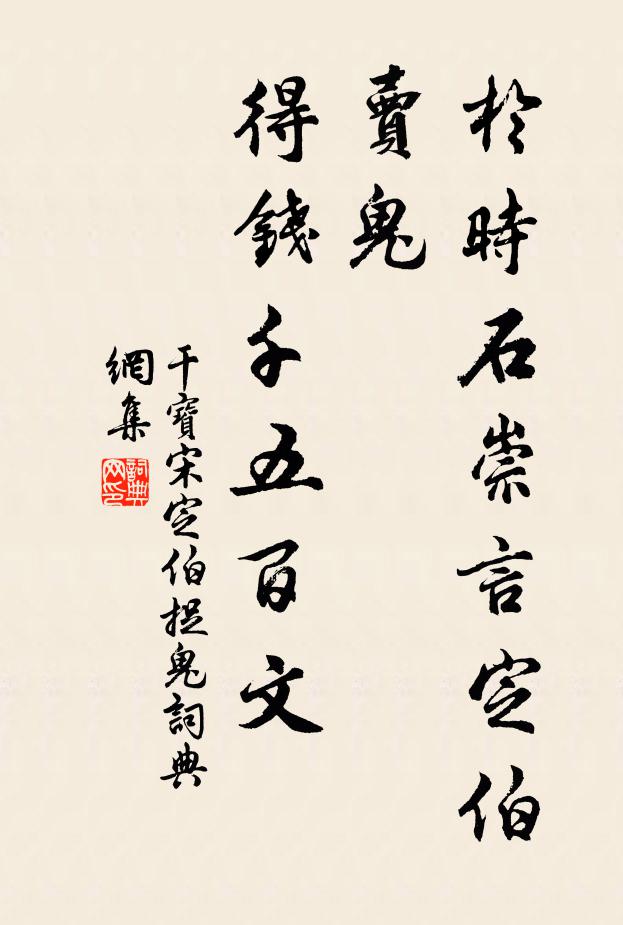 於時石崇言定伯
賣鬼
得錢千五百文
干寶宋定伯捉鬼詞典
網集
詞典
网印